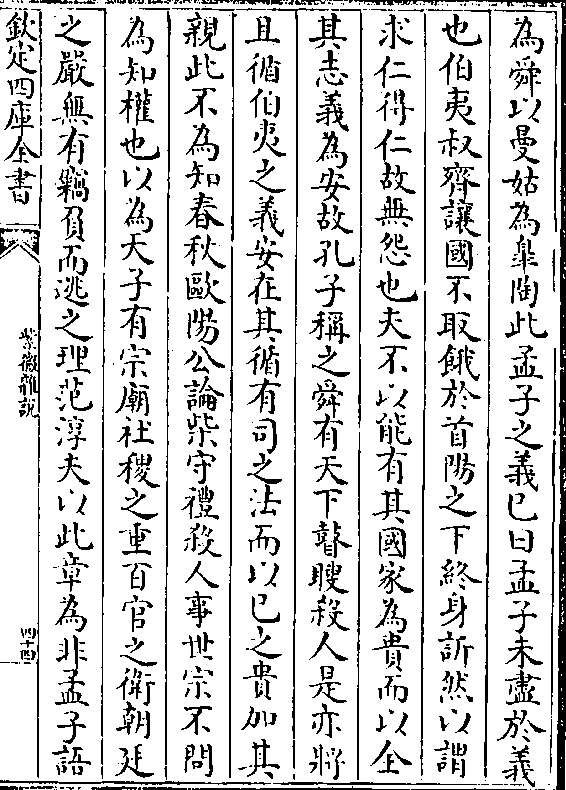 為舜以曼姑為臯陶此孟子之義已曰孟子未盡於義
也伯夷叔齊讓國不取餓於首陽之下終身訢然以謂
求仁得仁故無怨也夫不以能有其國家為貴而以全
其志義為安故孔子稱之舜有天下瞽瞍殺人是亦將
且循伯夷之義安在其循有司之法而以已之貴加其
親此不為知春秋歐陽公論柴守禮殺人事世宗不問
為知權也以為天子有宗廟社稷之重百官之衛朝廷
之嚴無有竊負而逃之理范淳夫以此章為非孟子語
欽定四庫全書
紫微雜說
四十四